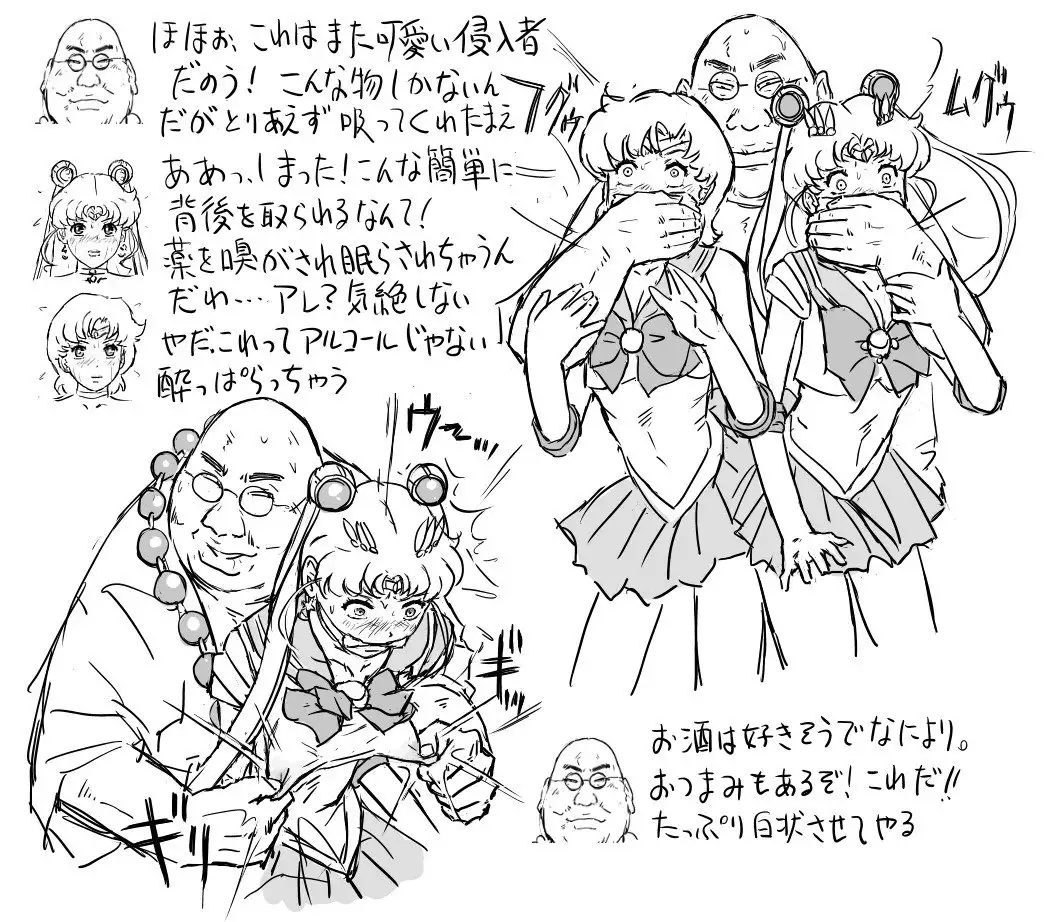 ほほぉ、これはまた可愛い侵入者
だのう! こんな物しかないん
だがとりあえず吸ってくれたまえ
ああっ、しまった!こんな簡単に
背後を取られるなんて!
薬を嗅がされ眠らされちゃうん
だわ…アレ?気絶しない
やだ、これってアルコールじゃない
酔っぱらっちゃう
フグゥ
ムグゥ
ウ〜…
ギッ
ギリッ
お酒は好きそうでなにより。
おつまみもあるぞ!これだ!!
たっぷり白状させてやる